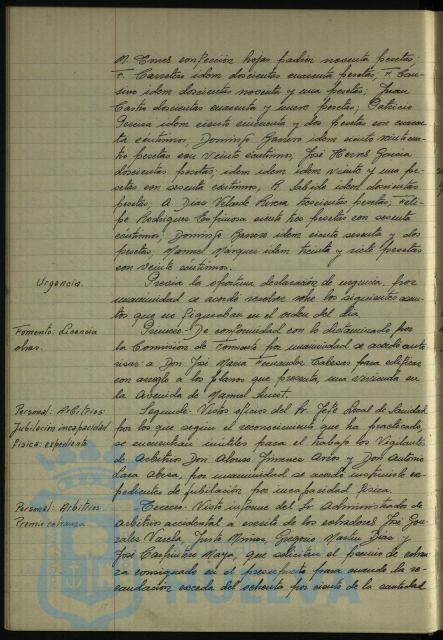 M. Torres confección hojas padrón noventa pesetas;
F. Carretero idem doscientas cuarenta pesetas; F.
idem doscientas noventa y una pesetas; Juan
Castro doscientas cuarenta y nueve pesetas; Patricio
Pereira idem ciento cincuenta y dos pesetas con cuaren-
ta céntimos; Domingo idem ciento veinticua-
tro pesetas con veinte céntimos; José García
doscientas pesetas; idem idem idem veinte y una pe-
setas con sesenta céntimos; R. Salcedo idem doscientas
pesetas; A. Diaz Velarde Rivera trescientas pesetas; Feli-
pe Rodriguez Espinosa ciento tres pesetas con sesenta
céntimos; Domingo idem ciento sesenta y dos
pesetas; Manuel Marquez idem treinta y siete pesetas
con veinte céntimos.
Urgencia.
Previa la oportuna declaración de urgencia, por
unanimidad se acordó resolver sobre los siguientes asun-
tos que no figuraban en el orden del dia.
Fomento: Licencia
obras.
Primero: De conformidad con lo dictaminado por
la Comisión de Fomento por unanimidad se acordó auto-
rizar a Don José Maria Fernandez Cabezas para edificar
con arreglo a los planos que presenta, una vivienda en
la Avenida de Manuel Siurot.
Personal: Arbitrios:
Jubilación incapacidad
física: expediente
Segundo: Visto oficio del Sr. Jefe Local de Sanidad
por lo que según el reconocimiento que ha practicado,
se encuentran inútiles para el trabajo los Vigilantes
de Arbitrios Don Alonso Jimenez y Don Antonio
Lara por unanimidad se acordó instruirle ex-
pedientes de jubilación por incapacidad física.
Personal: Arbitrios
Premio cobranza
Tercero: Visto informe del Sr. Administrador de
Arbitrios accidental a escrito de los cobradores José Gon-
zalez Varela, Justo Gregorio Martin Diaz y
José Carpintero Mayo, que solicitan el premio de cobran-
za consignado en el presupuesto para cuando la re-
caudación exceda del ochenta por ciento de la cantidad
HUELVA